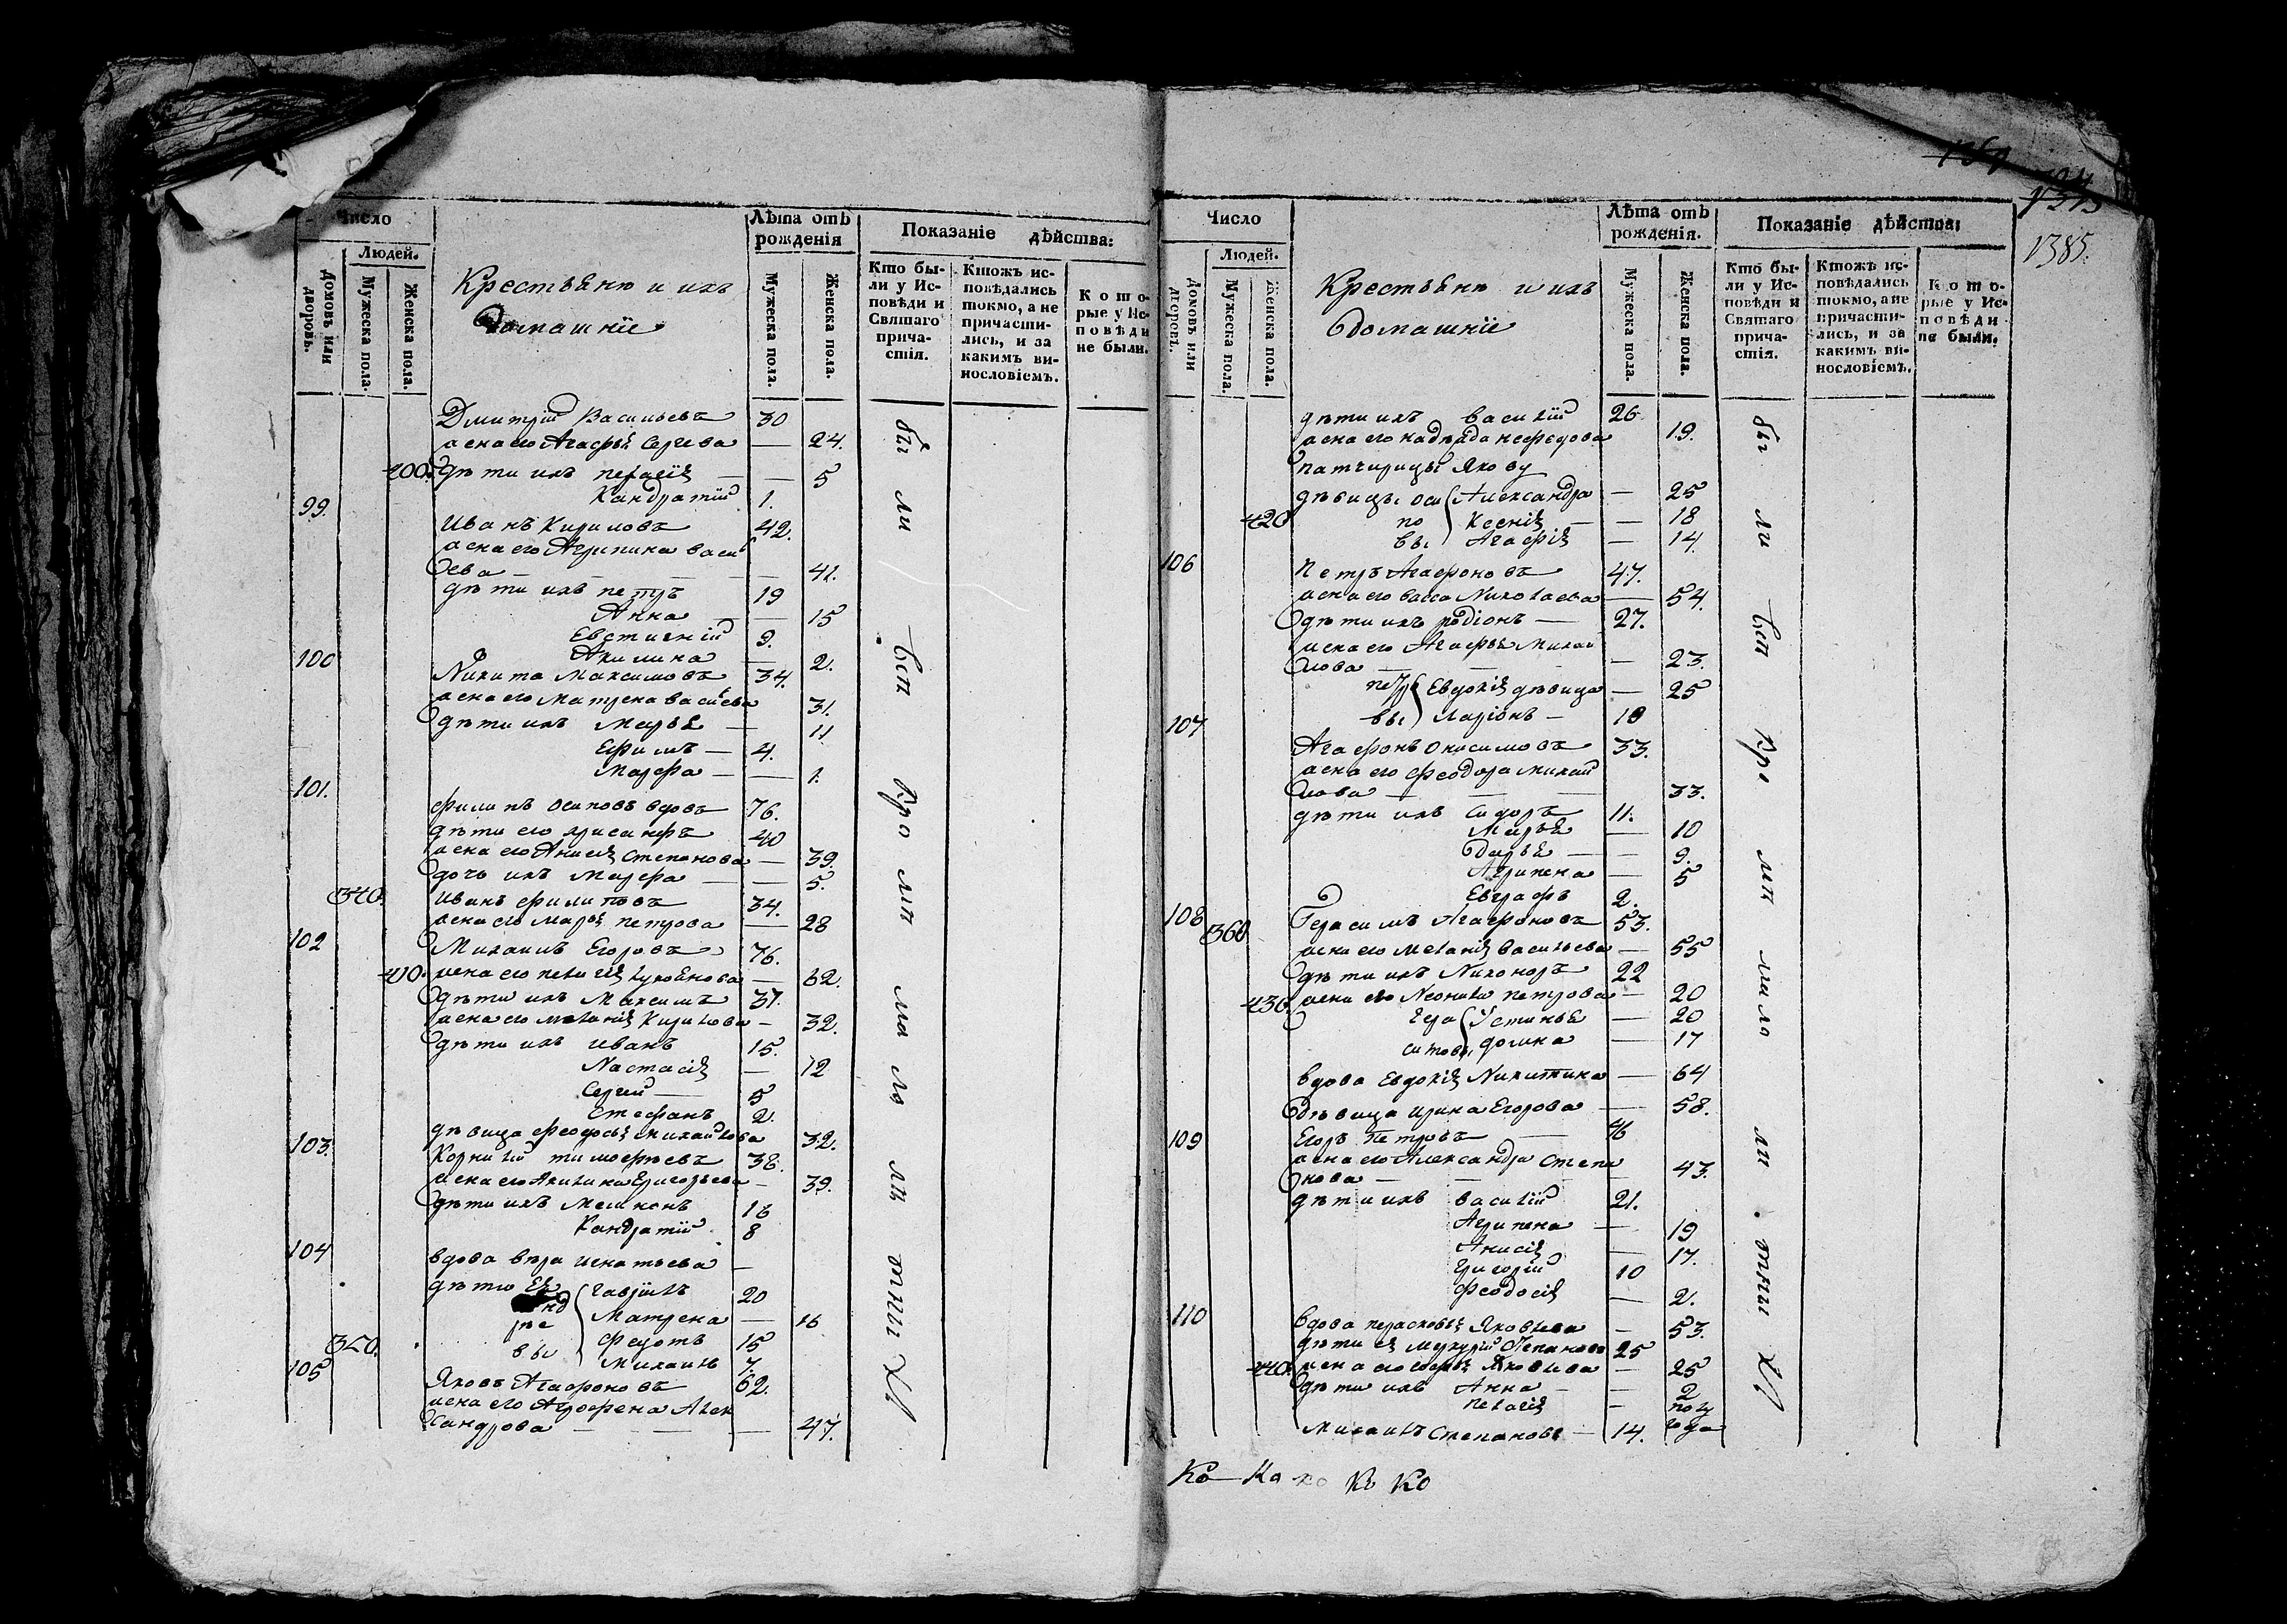 Число
Людей.
Домовъ или дворовъ.
Мужеска пола.
Женска пола.
Крестьяню и ихъ
Домашнїе
Лѣта отъ рожденія
Мужеска пола.
Женска пола.
Показаніе дѣйства:
Кто бы-
ли у Ис-
повѣди и
Святаго
прича-
стія.
Ктожъ ис-
повѣдались
токмо, а не
причасти-
лись, и за
какимъ ви-
нословіемъ.
К о т о-
рые у Ис-
п о в ѣ д и
не были.
Дмитрій Васильевъ 30
жена его Агафья Сергева — 24.
400. дѣти ихъ Пелагія — — 5
Кандратій 1.
99. Иванъ Кириловъ 42.
жена его Агрипина Васи
льева — 41.
дѣти ихъ петръ 19
Анна — 15
Евстигній 9.
Акилина — 2.
100 Никита Максимовъ 34.
жена его Матрена васильева 31.
дѣти ихъ Марья — 11
Ефимъ — 4.
Марфа — — 1.
101. Филипъ Осиповъ вдовъ 76.
дѣти его Хрисанфъ 40
жена его Анисія Степанова — 39.
дочь ихъ Марфа — — 5.
340. Иванъ Филиповъ 34.
жена его Марья петрова — 28
102 Михаилъ Егоровъ 76.
410. жена его пелагія — 62.
дѣти ихъ Максимъ 37.
жена его меланія Кирилова — 32.
дѣти ихъ иванъ 15.
Настасія — 12
Сергий — 5
Стефанъ 2.
дѣвица Феодосья Михайлова 32.
103. Корнилій тимофѣевъ 38.
жена его Акилина Григорьева — 39.
дѣти ихъ 16
Кандратій 8
104 вдова вѣра игнатьева —
дѣти Ея Гавріилъ 20
Матрена — 16
Федотъ 15
350. Михаилъ 7.
105 Яковъ Агафоновъ 62.
жена его Агрофена Алек
сандрова — — — 47.
бы ли
Число
Людей.
Домовъ или дворовъ.
Мужеска пола.
Женска пола.
Крестьяню и ихъ
домашнїе
Лѣта отъ рожденія.
Мужеска пола.
Женска пола.
Показаніе дѣйства:
Кто бы-
ли у Ис-
повѣди и
Святаго
прича-
стія.
Ктожъ ис-
повѣдались
токмо, а не
причасти-
лись, и за
какимъ ви-
нословіемъ.
К о т о-
рые у Ис-
п о в ѣ д и
не были.
1385.
дѣти ихъ василій 26
жена его надѣжда нефедова 19.
патчирицы Якову
дѣвицы оси Александра — 25
420 по Ксенія — — 18
вы Агафія — 14.
106 Петръ Агафоновъ 47.
жена его васса Николаева — 54.
дѣти ихъ родіонъ — 27.
жена его Агафья Михай
лова — — 23.
петро Евдокія дѣвица — 25
вы Ларіонъ — 18
107 Агафонъ Онисимовъ 33.
жена его Феодора михай
лова — — 33.
дѣти ихъ Сидоръ 11.
Марья — 10
Дарья — — 9.
Агрипена — 5
Евграфъ 2.
108 360 Герасимъ Агафоновъ 53.
жена его Меланія васильева — 55
дѣти ихъ Никоноръ 22
430. жена его Леонила петрова — 20
Гера Устинья — 20
симовы домна — 17
вдова Евдокія Никитина — 64
дѣвица ирина Егорова — 58.
109 Егоръ Петровъ — 46
жена его Александра Степа
нова — — — 43.
дѣти ихъ василій 21.
Агрипена — 19
Анисія — 17.
Григорій 10
Феодосія — 2.
110 вдова перасковья Яковлева — 53.
дѣти ея Меркурій Степановъ 25
440. жена его софья Яковлева — 25
дѣти ихъ Анна — — 2
Пелагія — полу
года
Михаилъ Степановъ — 14.
бы ли
Ко — Ка ко Ко Ко